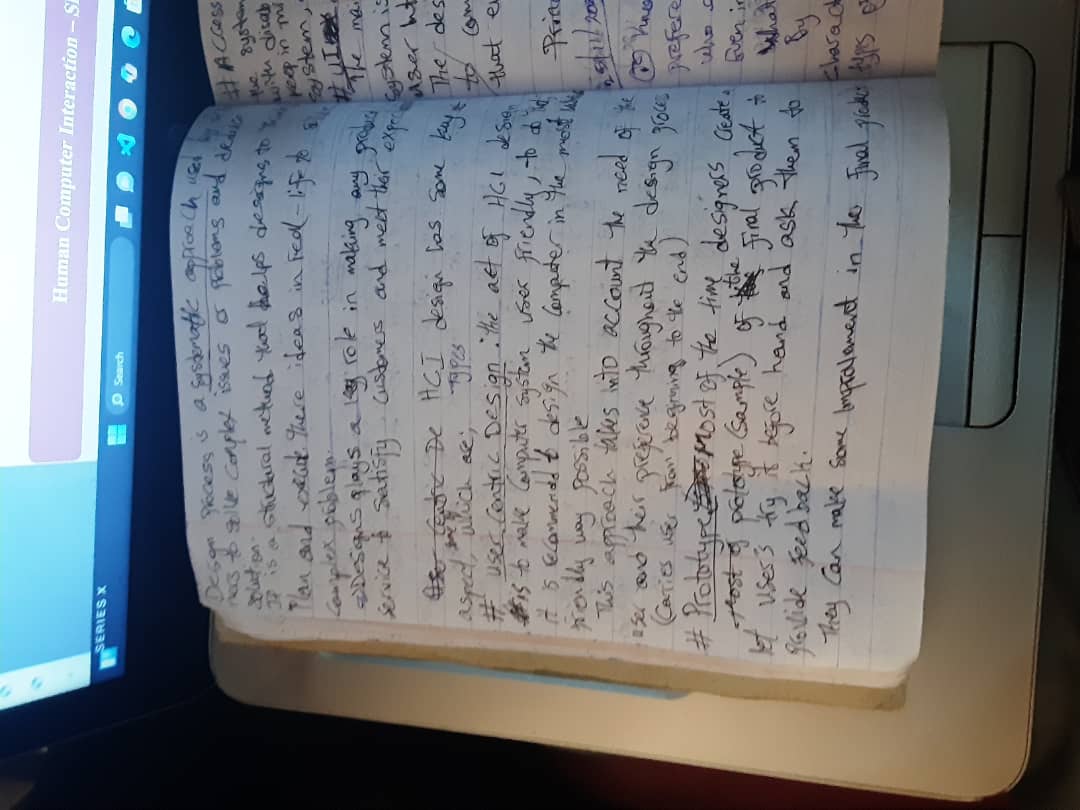 Human Computer Interaction – S
SERIES X
Search
Design Process is a systematic approach used by
ners to solve complex issues or problems and
solution.
It is a structural method that helps designs to
Plan and execute there ideas in real-life to
complex problem.
Designs plays a key role in making any produc
service to satisfy customers and meet their expec
HCI design has some key
aspect, which are; types
# user Centric Design : the act of HCI design
is to make computer system user friendly, to do that
it is ecommendd to design the computer in the most user
friendly way possible
This approach takes into account the need of the
user and their preference throughout the design proces
(Carries user from beginning to the end)
# Prototype Most of the time designers create
prototype (sample) of the final product to
let users's try it before hand and ask them to
provide feedback.
They can make some Improlement in the final product
# Access
the system
with disab
keep in mi
system,
# UI
The mai
system is
user Int
The des
to com
that e
prefere
who
Even in
what
By
charact
types of